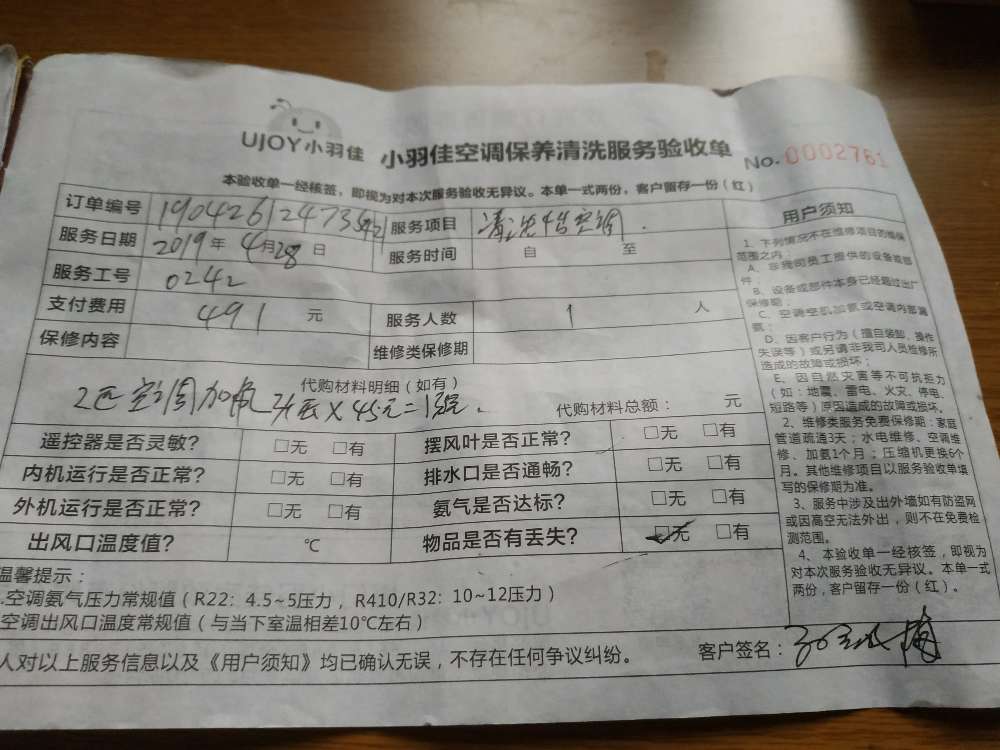 UJOY小羽佳 小羽佳空调保养清洗服务验收单 No.0002761
本验收单一经核签，即视为对本次服务验收无异议。本单一式两份，客户留存一份（红）
订单编号 服务项目 清洗 空调
服务日期 2019年4月28日 服务时间 自 至
服务工号 0242
支付费用 491 元 服务人数 1 人
保修内容 维修类保修期
代购材料明细（如有）
2匹空调加氟 X 45元=
代购材料总额： 元
遥控器是否灵敏? □无 □有 摆风叶是否正常? □无 □有
内机运行是否正常? □无 □有 排水口是否通畅? □无 □有
外机运行是否正常? □无 □有 氨气是否达标? □无 □有
出风口温度值? ℃ 物品是否有丢失? □无 □有
温馨提示：
.空调氨气压力常规值（R22：4.5~5压力，R410/R32：10~12压力）
空调出风口温度常规值（与当下室温相差10℃左右）
人对以上服务信息以及《用户须知》均已确认无误，不存在任何争议纠纷。 客户签名：
用户须知
1、下列情况不在维修项目的维保
范围之内：
A、非我司员工提供的设备或部
件；
B、设备或部件本身已经超过出厂
保修期；
C、空调空机加氨或空调内部漏
氨；
D、因客户行为（擅自装卸、操作
失误等）或另请非我司人员检修所
造成的故障或损坏；
E、因自然灾害等不可抗拒力
（如：地震、雷电、火灾、停电、
短路等）原因造成的故障或损坏。
2、维修类服务免费保修期：家庭
管道疏通3天；水电维修、空调维
修、加氨1个月；压缩机更换6个
月。其他维修项目以服务验收单填
写的保修期为准。
3、服务中涉及出外墙如有防盗网
或因高空无法外出，则不在免费检
测范围。
4、本验收单一经核签，即视为
对本次服务验收无异议。本单一式
两份，客户留存一份（红）。